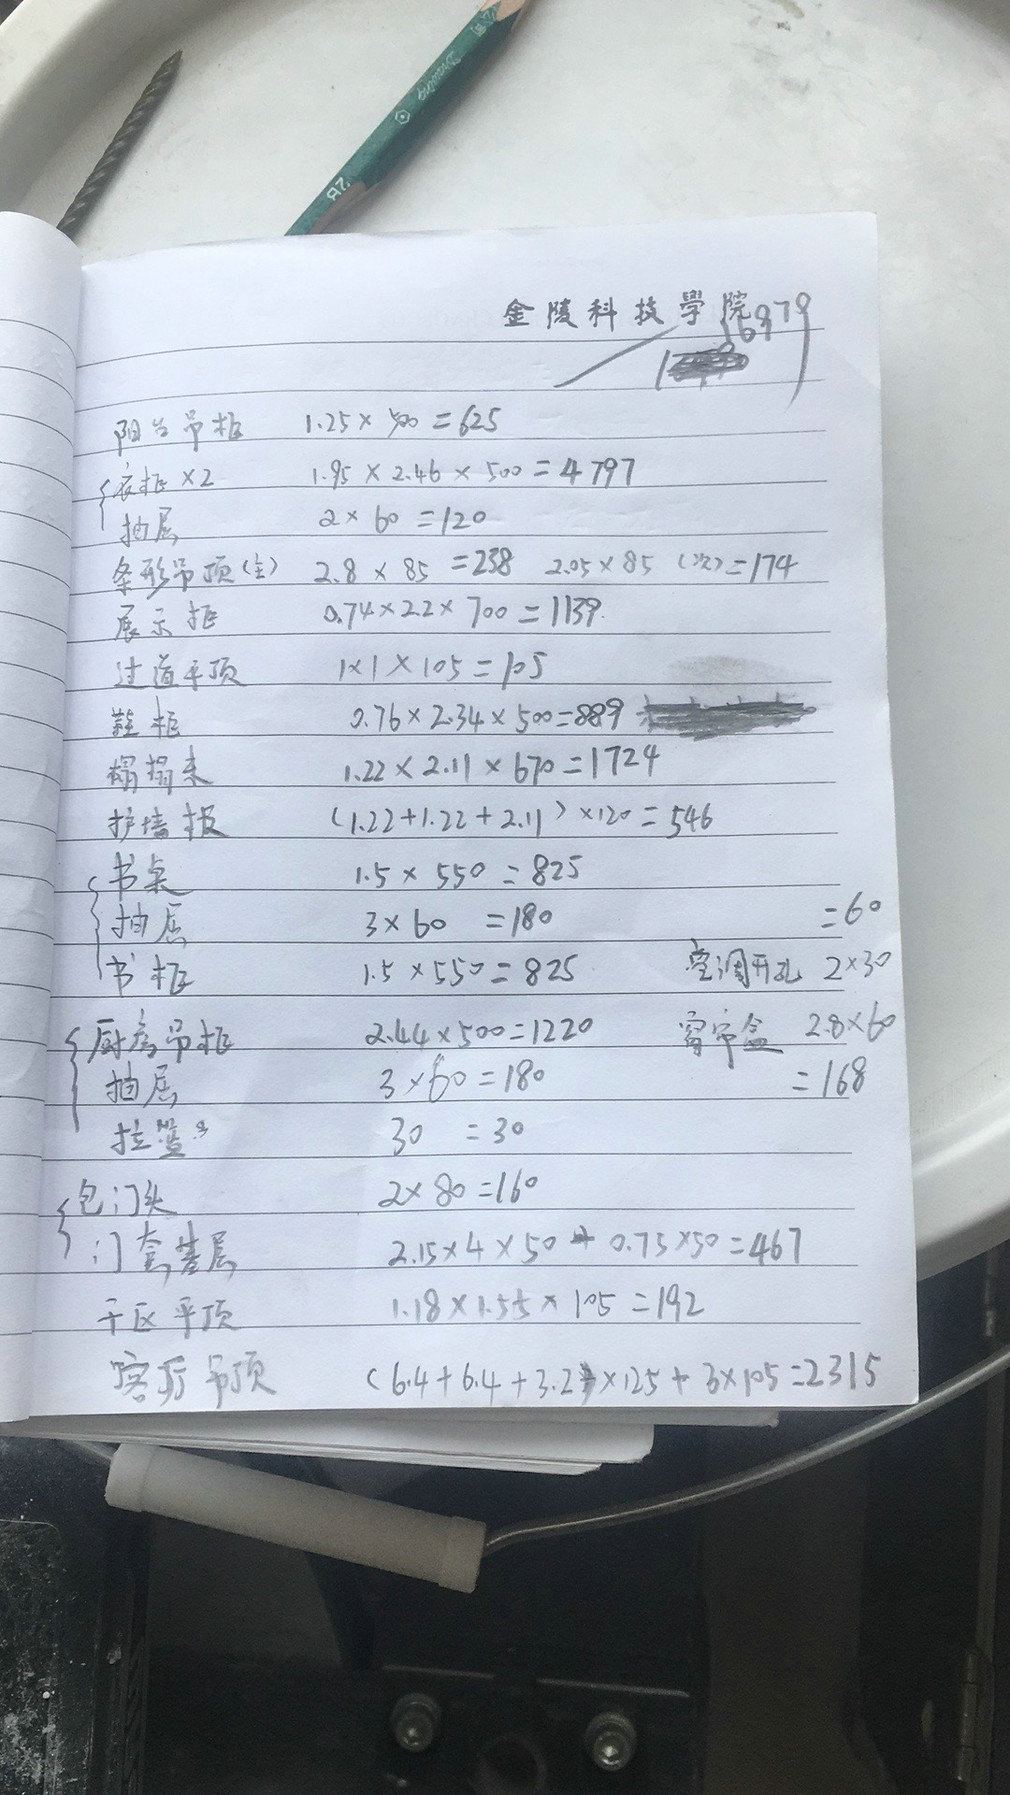 Drawing
2B
金陵科技學院
16979
阳台吊柜 1.25×500=625
衣柜×2 1.95×2.46×500=4797
抽屉 2×60=120
条形吊顶(主) 2.8×85=238 2.05×85(次)=174
展示柜 0.74×2.2×700=1139
过道平顶 1×1×105=105
鞋柜 0.76×2.34×500=889
榻榻米 1.22×2.11×670=1724
护墙板 (1.22+1.22+2.11)×120=546
书桌 1.5×550=825
抽屉 3×60=180 =60
书柜 1.5×550=825 空调开孔 2×30
厨房吊柜 2.44×500=1220 窗帘盒 2.8×60
抽屉 3×60=180 =168
拉篮 30=30
包门头 2×80=160
门套基层 2.15×4×50+0.75×50=467
干区平顶 1.18×1.55×105=192
客厅吊顶 (6.4+6.4+3.2)×125+3×105=2315